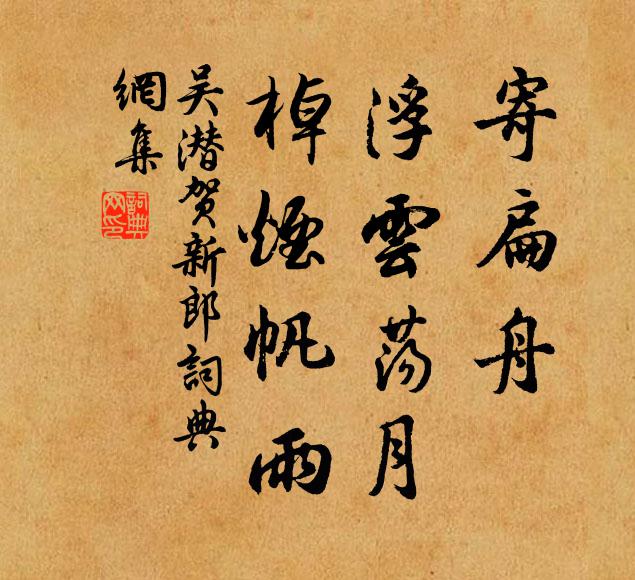 寄扁舟
浮雲荡月
棹煙帆雨
吴潜贺新郎詞典
網集
詞典網印